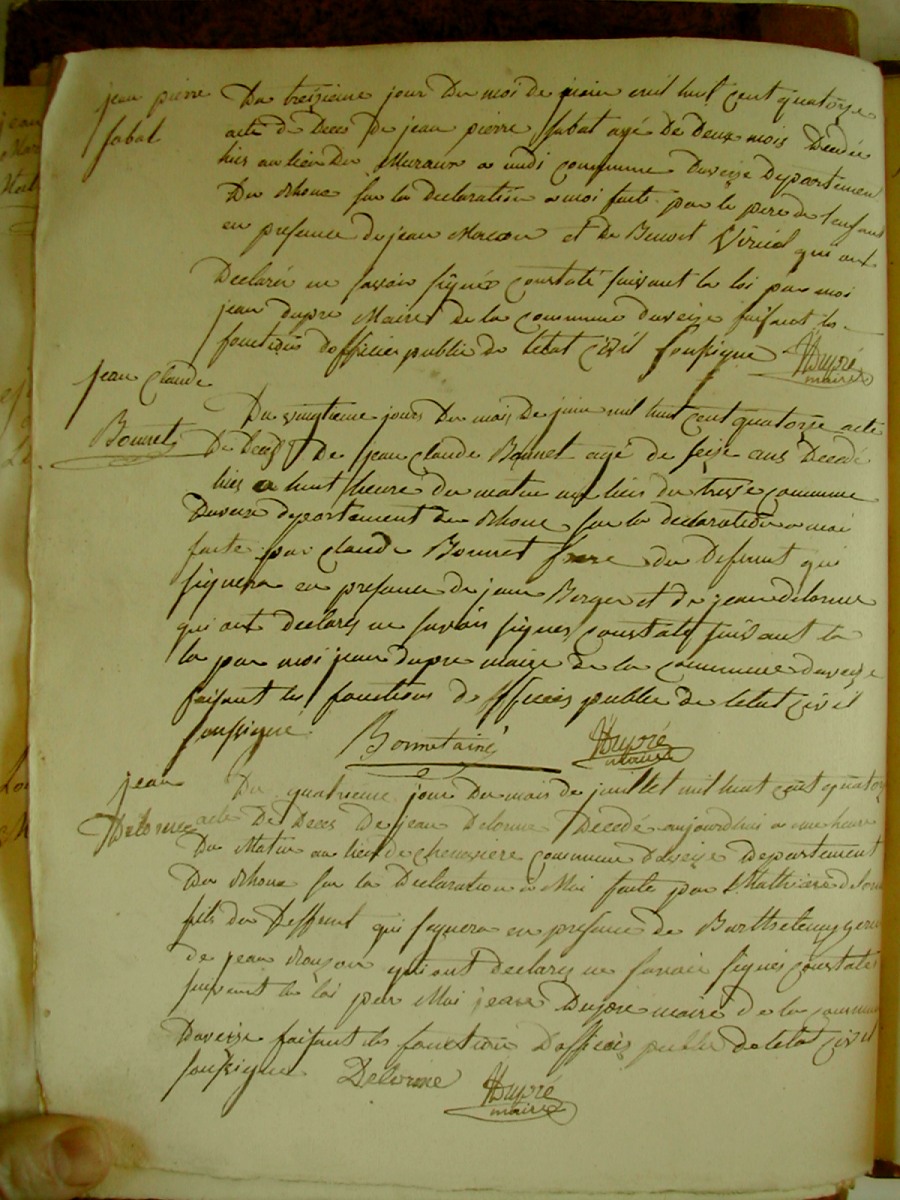 jean pierre
sabat
Du treizieme jour Du moi de juin mil huit cent quatorze
acte de Deces de jean pierre sabat agé De Deux mois Decedé
hier au lieu Du a midi commune Daveize Departement
Du rhone sur la declaration a moi faite par le pere de lenfant
en presence de jean et de Benoit qui ont
Declarés ne savoir signés constaté suivant la loi par moi
jean dupre Maire de la commune daveize faisant les
fonctions dofficier public de letat civil soussigne JDupré
maire
jean Claude
Bonnet
Du vingtieme jours Du mois De juin mil huit cent quatorze acte
De Deces De jean claude Bonnet agé de seize ans Decedé
hier a huit heure du matin au lieu du commune
Daveize departement du rhone sur la declaration a moi
faite par claude Bonnet frere du Defunt qui
signera en presence de jean Berger et de jean delorme
qui ont declarés ne savoir signes constaté suivant la
loi par moi jean dupre maire de la commune daveize
faisant les fonctions dofficier public de letat civil
soussigné Bonnet JDupré
maire
jean
Delorme
Du quatrieme jour Du mois de juillet mil huit cent quatorze
acte De Deces De jean Delorme Decedé aujourdhui a une heure
Du Matin au lieu de commune Daveize Departement
Du rhone sur la Declaration a Moi faite par Mathieu delorme
fils du Deffunt qui signera en presence de Barthelemy
de jean qui ont declarés ne savoir signés constaté
suivant la loi par Moi jean Dupre maire de la commune
Daveize faisant les fonction Dofficier public de letat civil
soussigne Delorme JDupré
maire